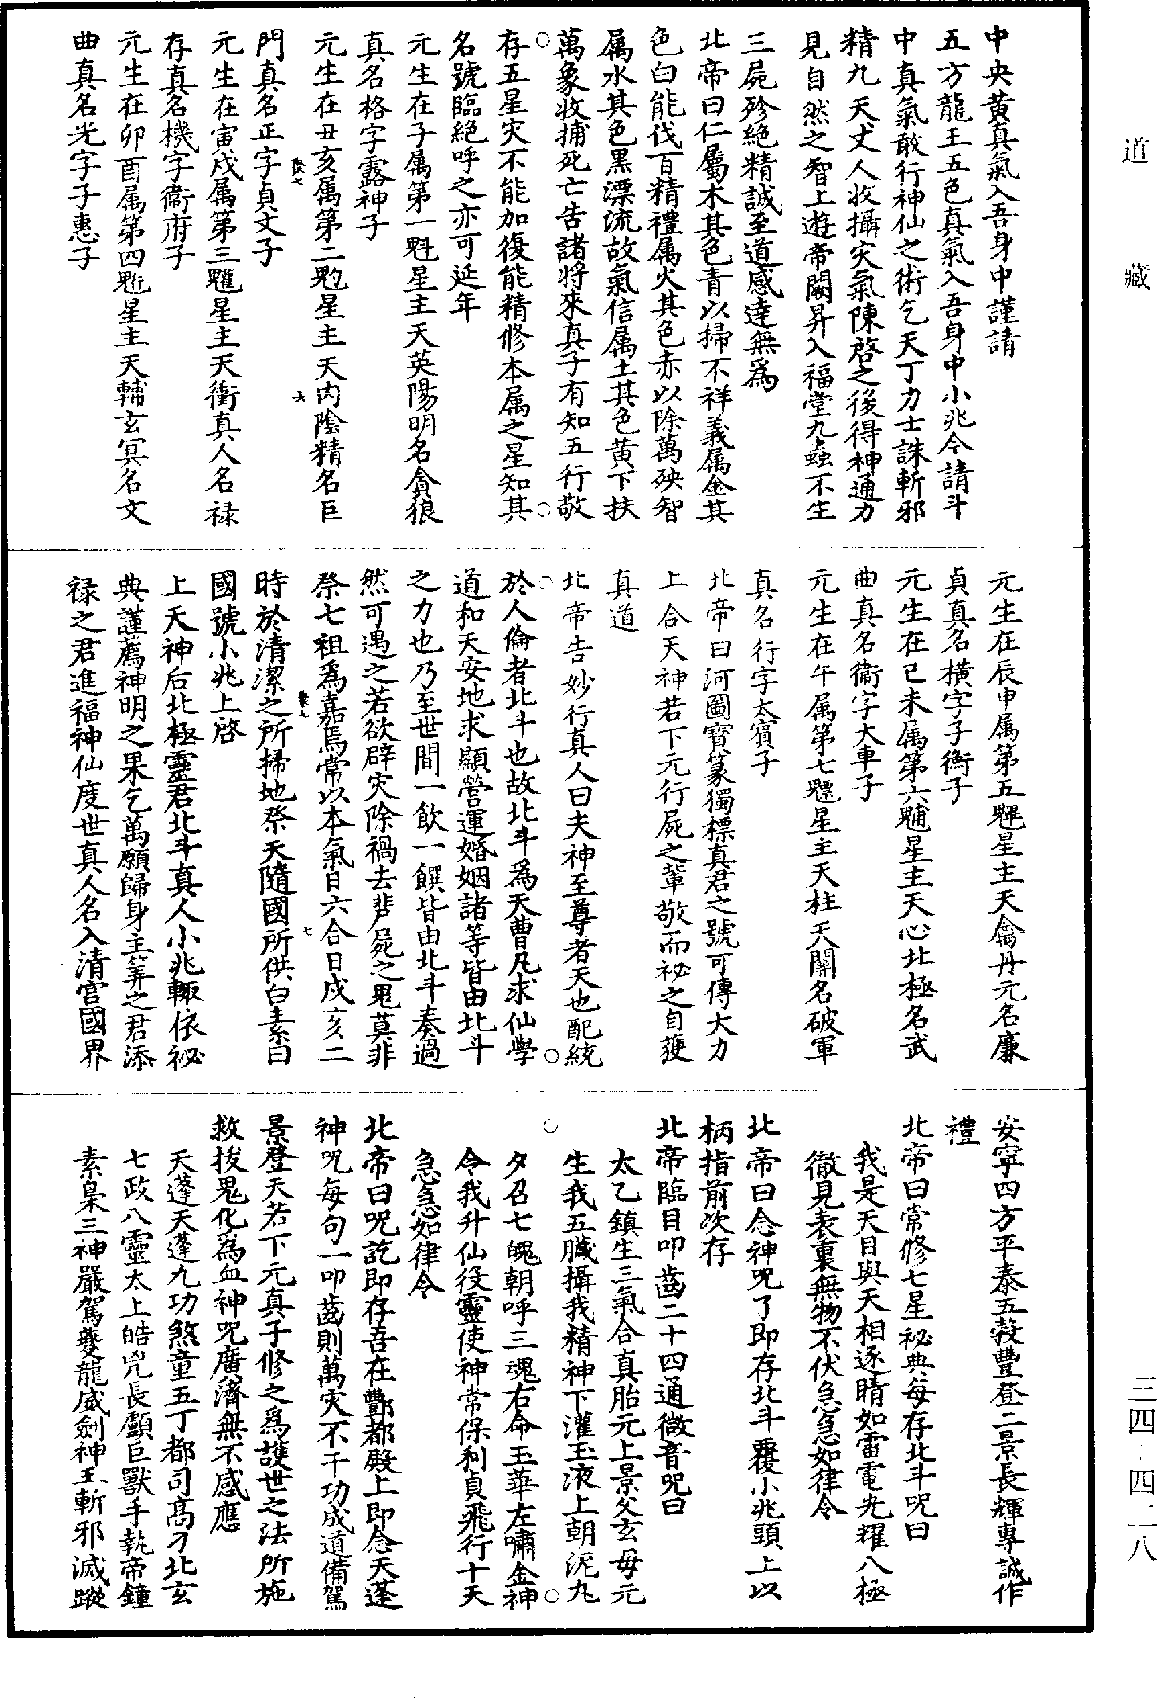 道藏
三四·四二八
中央黃真氣入吾身中謹請
五方龍王五色真氣入吾身中小兆今請斗
中真氣敢行神仙之術乞天丁力士誅斬邪
精九天丈人收攝灾氣陳啓之後得神通力
見自然之智上遊帝闕昇入福堂九蟲不生
三屍殄絕精誠至道感達無為
北帝曰仁屬木其色青以掃不祥義属金其
色白能伐百精禮属火其色赤以除萬殃智
属水其色黑漂流故氣信属土其色黄下扶
萬象收捕死亡告諸將來真子有知五行敬
存五星灾不能加復能精修本属之星知其
名號臨絕呼之亦可延年
元生在子属第一魁星主天英陽明名貪狼
真名格字露神子
元生在丑亥属第二䰢星主天内陰精名巨
門真名正字貞文子
元生在寅戌属第三䰡星主天衝真人名祿
存真名機字衞府子
元生在卯酉属第四魓星主天輔玄冥名文
曲真名光字子惠子
元生在辰申属第五魓星主天禽丹元名廉
貞真名橫字子衞子
元生在巳未属第六䰣星主天心北極名武
曲真名衞字大車子
元生在午属第七魒星主天柱天關名破軍
真名行字太賓子
北帝曰河圖寶篆獨標真君之號可傳大力
上合天神若下元行屍之輩敬而祕之自獲
真道
北帝告妙行真人曰夫神至尊者天也配統
於人倫者北斗也故北斗為天曹凡求仙學
道和天安地求顯營運婚姻諸等皆由北斗
之力也乃至世間一飲一饌皆由北斗奏過
然可遇之若欲辟灾除禍去悲屍之鬼莫非
祭七祖為嘉焉常以本氣日六合日戌亥二
時於清潔之所掃地祭天隨國所供白素曰
國號小兆上啓
上天神后北極靈君北斗真人小兆輙依祕
典謹薦神明之果乞萬願歸身主筭之君添
禄之君進福神仙度世真人名入清宫國界
安寧四方平泰五穀豐登二景長輝專誠作
禮
北帝曰常修七星秘典每存北斗呪曰
我是天目與天相逐睛如雷電光耀八極
徹見表裏無物不伏急急如律令
北帝曰念神呪了即存北斗覆小兆頭上以
柄指前次存
北帝臨目叩齒二十四通微音呪曰
太乙鎮生三氣合真胎元上景父玄母元
生我五臟攝我精神下灌玉液上朝泥丸
夕召七魄朝呼三魂右命玉華左嘯金神
令我升仙役靈使神常保利貞飛行十天
急急如律令
北帝曰呪訖即存吾在酆都殿上即念天蓬
神呪每句一叩齒則萬灾不干功成道備駕
景登天若下元真子修之為護世之法所施
救拔鬼化為血神呪廣濟無不感應
天蓬天蓬九功煞童五丁都司高刁北玄
七政八靈太上皓兇長顱巨獸手執帝鐘
素梟三神嚴駕夔龍威劍神王斬邪滅蹤